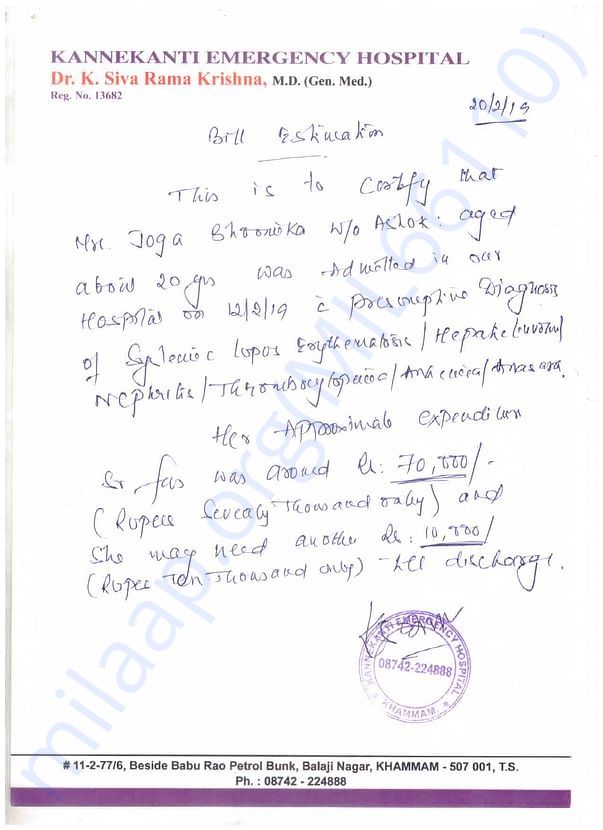 KANNEKANTI EMERGENCY HOSPITAL
Dr. K. Siva Rama Krishna, M.D. (Gen. Med.)
Reg. No. 13682
20/2/19
Bill Estimation
This is to certify that
Mrs. Joga Bhoomika W/o Ashok: aged
about 20 yrs was Admitted in our
Hospital on 12/2/19 c̄ presumptive Diagnosis
of Systemic lupus Erythematosis / Hepatic
Nephritis / Thrombocytopenia / Anaemia / Anasarca.
Her Approximate expenditure
So far was around Rs: 70,000/-
(Rupees Seventy Thousand only) and
She may need another Rs: 10,000/
(Rupees Ten Thousand only) till discharge.
KANNEKANTI EMERGENCY HOSPITAL
08742-224888
KHAMMAM.
# 11-2-77/6, Beside Babu Rao Petrol Bunk, Balaji Nagar, KHAMMAM - 507 001, T.S.
Ph. : 08742 - 224888
milaap.org(MIL66110)